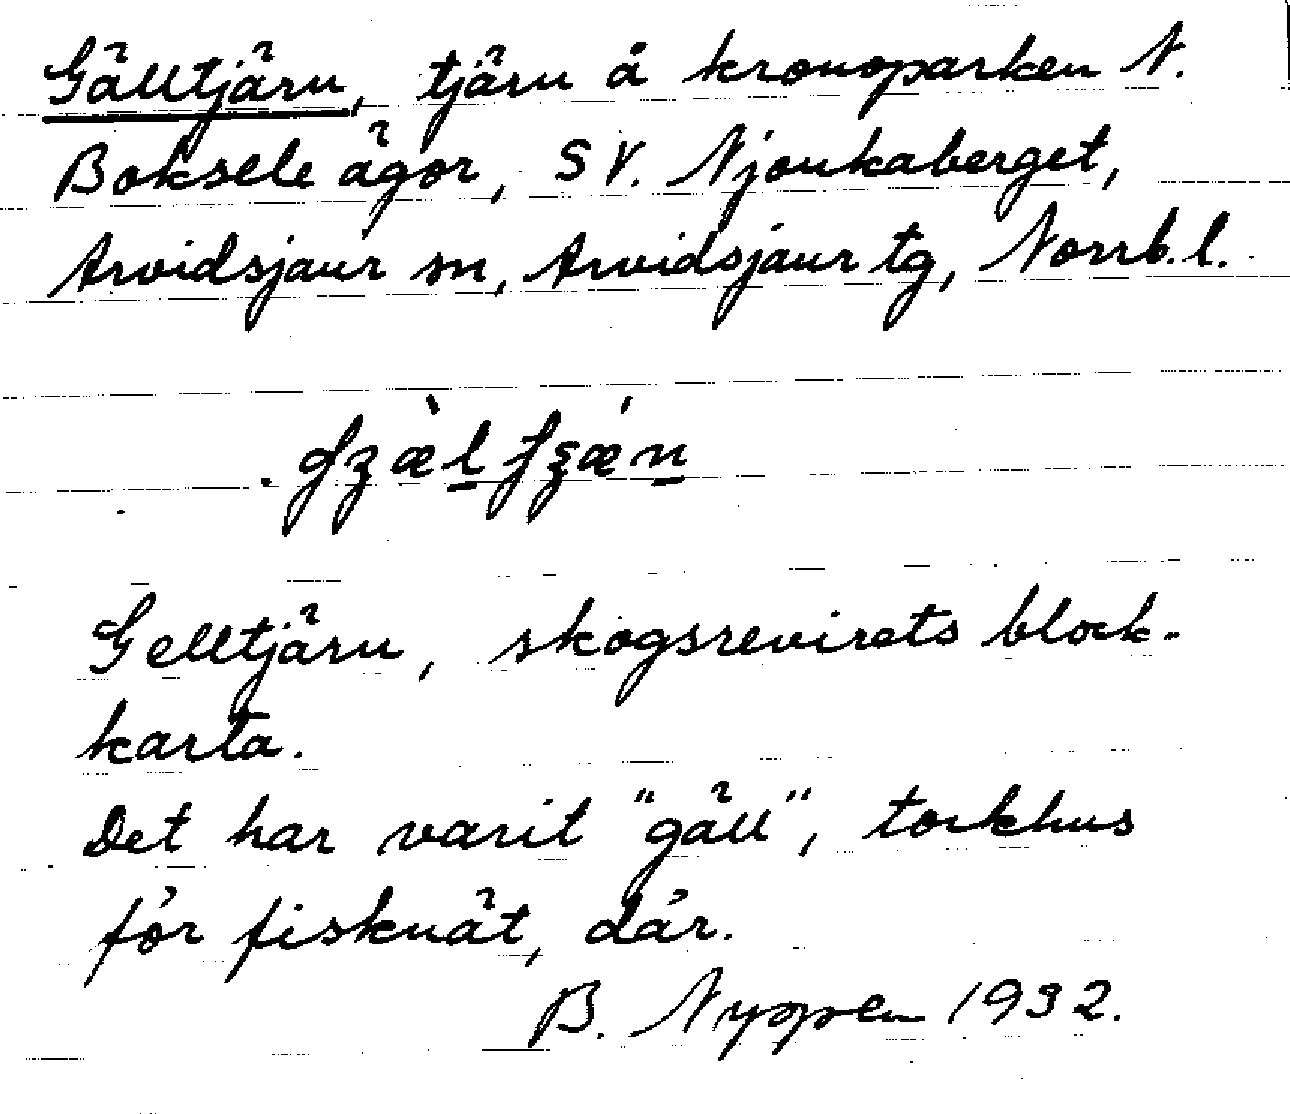 Gälltjärn, tjärn å kronoparken N.
Boksele ägor, SV. Njoukaberget,
Arvidsjaur sn, Arvidsjaur tg, Norrb. l.
Gelltjärn, skogsrevirets block-
karta.
Det har varit "gäll", torkhus
för fisknät, där.
B. Nyppen 1932.